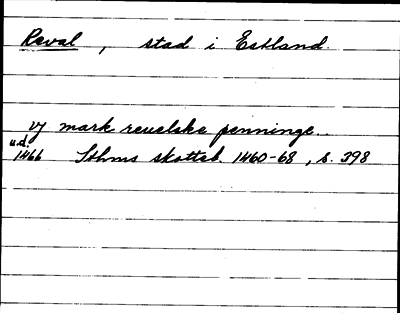 Reval, stad i Estland.
vj mark reuelske penninge.
u.d.
1466 Sthms skotteb. 1460-68, s. 398